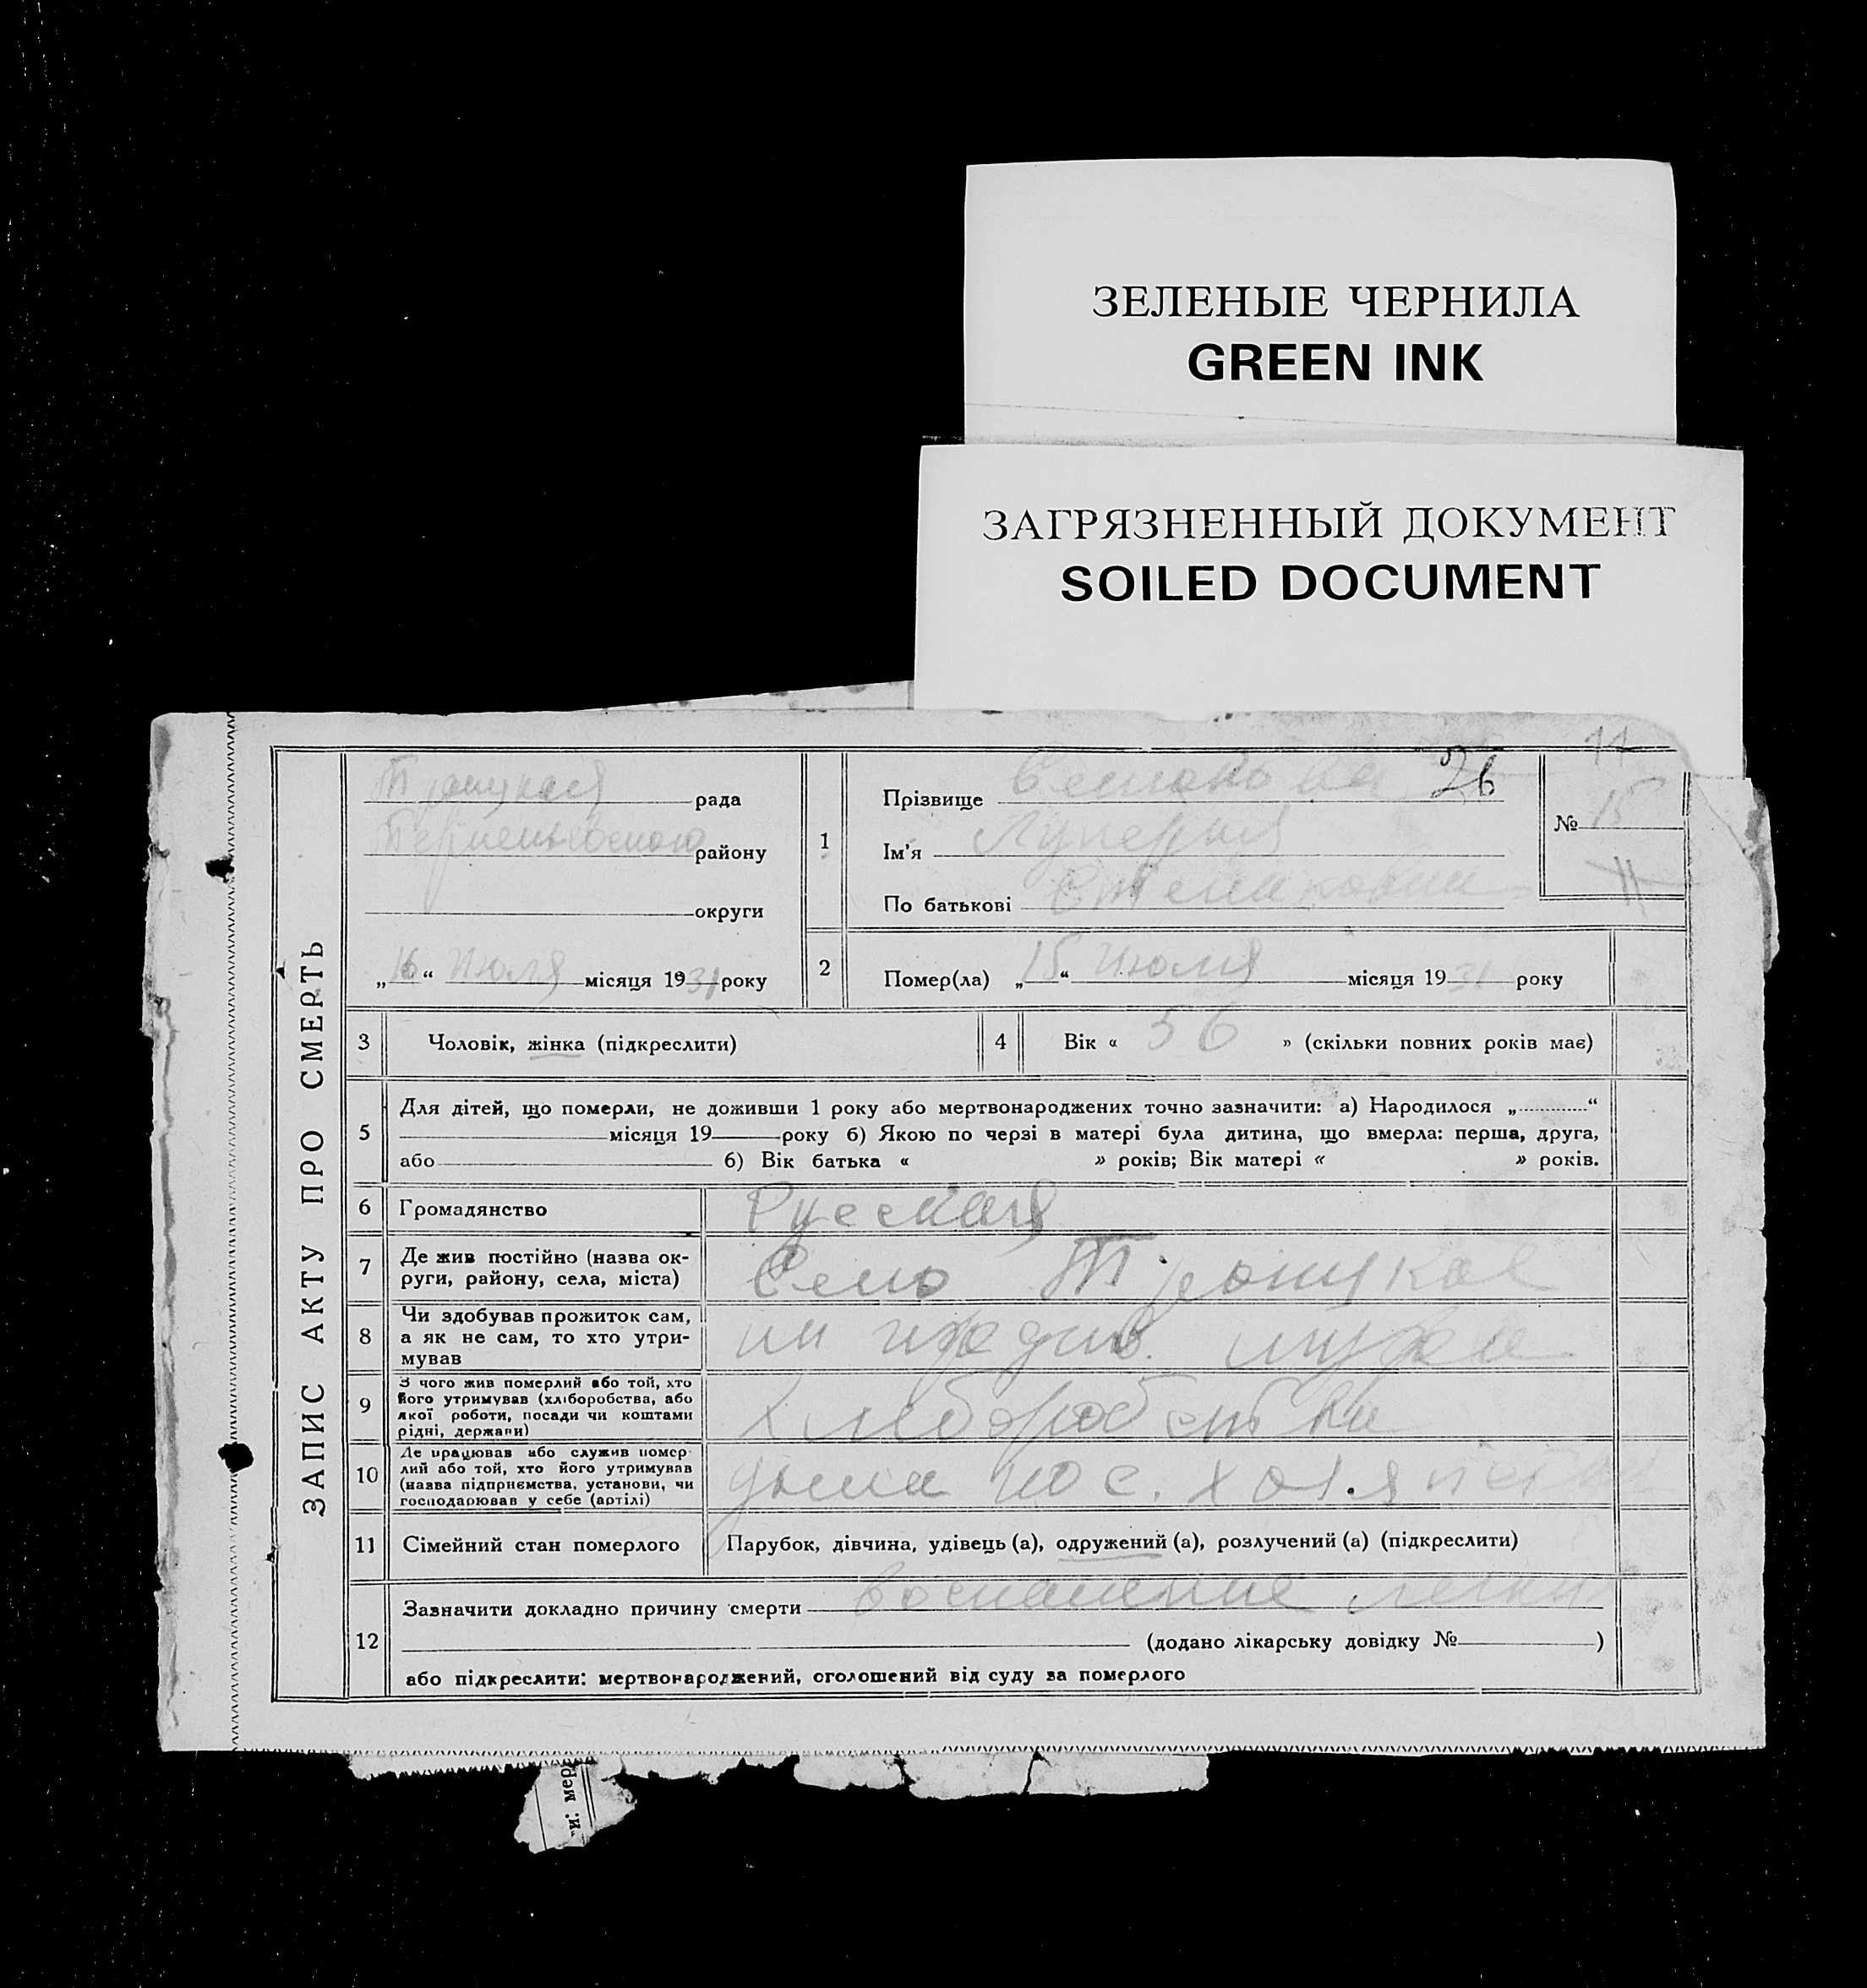 ЗЕЛЕНЫЕ ЧЕРНИЛА
GREEN INK
ЗАГРЯЗНЕННЫЙ ДОКУМЕНТ
SOILED DOCUMENT
ЗАПИС АКТУ ПРО СМЕРТЬ
11
Троицкая рада
району
округи
„16“ Июля місяця 1931 року
1
Прізвище 26
Ім'я Лукерья
По батькові
№ 15
11
2
Помер(ла) „15“ Июля місяця 1931 року
3 Чоловік, жінка (підкреслити)
4 Вік « 56 » (скільки повних років має)
5 Для дітей, що померли, не доживши 1 року або мертвонароджених точно зазначити: а) Народилося „ “
місяця 19 року б) Якою по черзі в матері була дитина, що вмерла: перша, друга,
або б) Вік батька « » років; Вік матері « » років.
6 Громадянство Русская
7 Де жив постійно (назва ок-
руги, району, села, міста) Село Троицкое
8 Чи здобував прожиток сам,
а як не сам, то хто утри-
мував мужа
9 З чого жив померлий або той, хто
його утримував (хліборобства, або
якої роботи, посади чи коштами
рідні, держави) хлеборобства
10 Де працював або служив помер-
лий або той, хто його утримував
(назва підприємства, установи, чи
господарював у себе (артілі)
11 Сімейний стан померлого Парубок, дівчина, удівець (а), одружений (а), розлучений (а) (підкреслити)
12 Зазначити докладно причину смерти воспаление легких
(додано лікарську довідку № )
або підкреслити: мертвонароджений, оголошений від суду за померлого
ти: мер